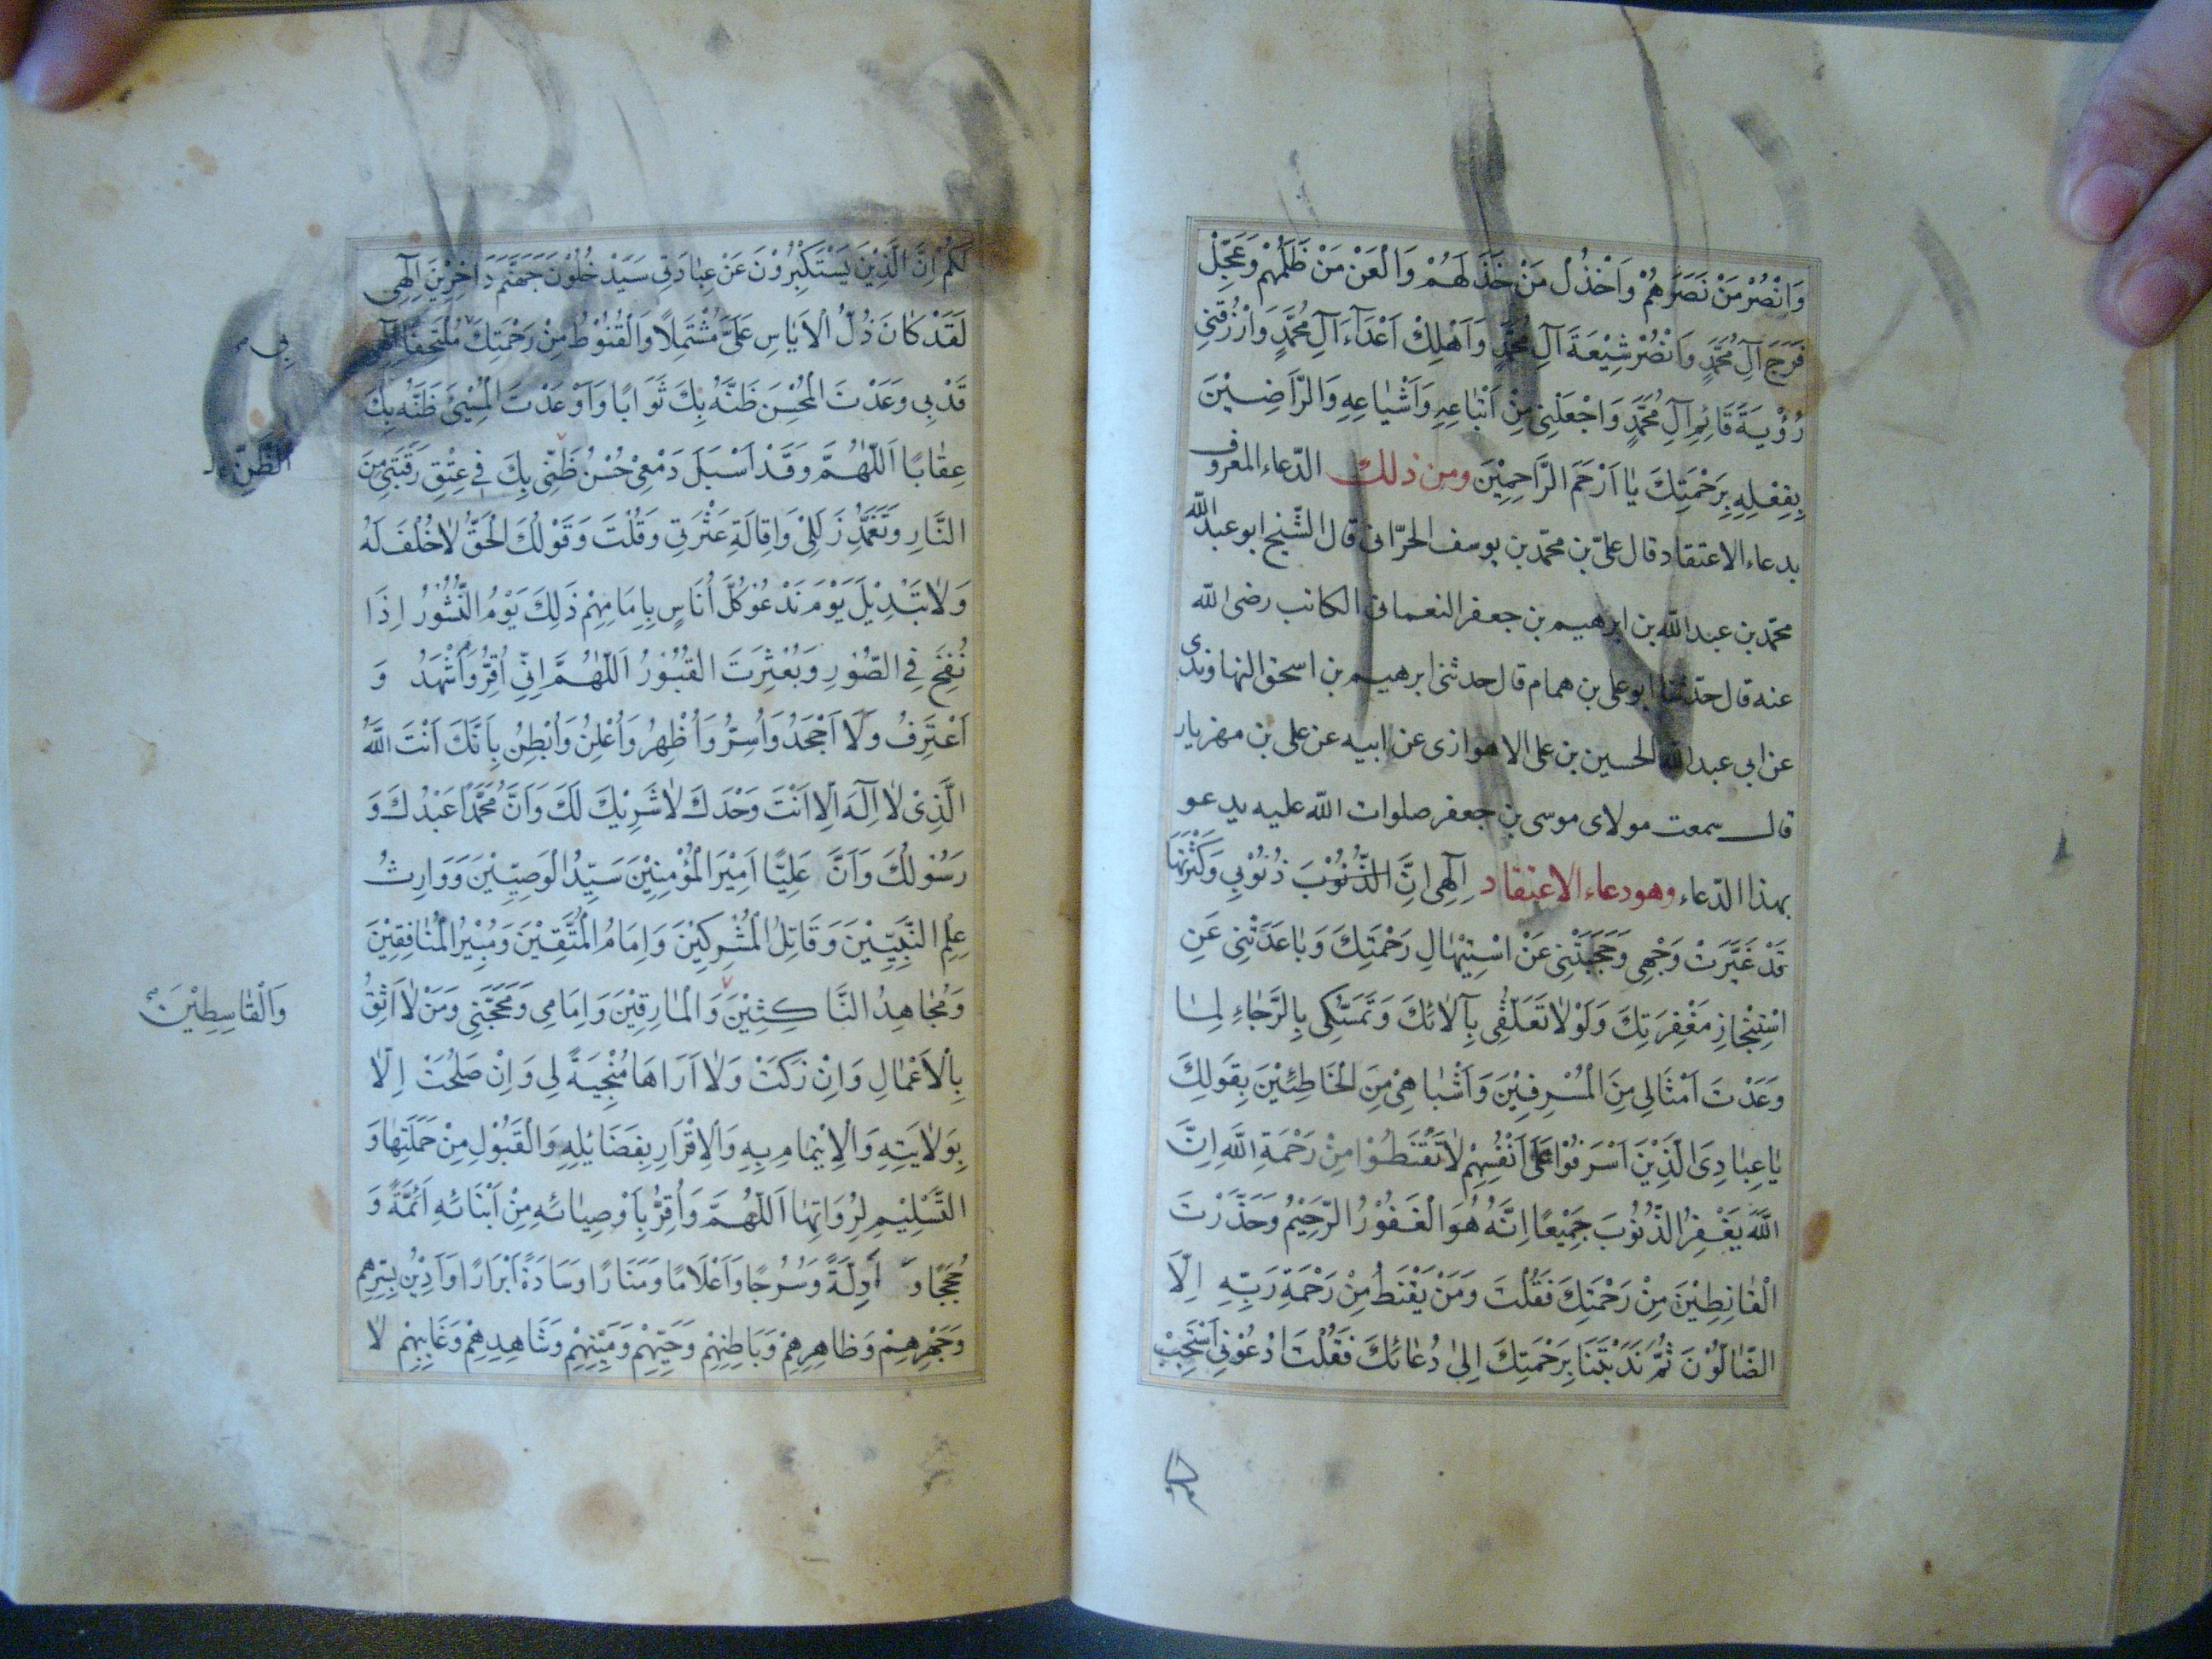 وَانْصُرْ مَنْ نَصَرَهُمْ وَاخْذُلْ مَنْ خَذَلَهُمْ وَالْعَنْ مَنْ ظَلَمَهُمْ وَعَجِّلْ
فَرَجَ آلِ مُحَمَّدٍ وَانْصُرْ شِيْعَةَ آلِ مُحَمَّدٍ وَاَهْلِكْ اَعْدَاءَ آلِ مُحَمَّدٍ وَارْزُقْنِي
رُؤْيَةَ قَائِمِ آلِ مُحَمَّدٍ وَاجْعَلْنِي مِنْ اَتْبَاعِهِ وَاَشْيَاعِهِ وَالرَّاضِيْنَ
بِفِعْلِهِ بِرَحْمَتِكَ يَا اَرْحَمَ الرَّاحِمِيْنَ ومن ذلك الدّعاء المعروف
بدعاء الاعتقاد قال علىّ بن محمّد بن يوسف الحرّانى قال الشّيخ ابو عبدالله
محمّد بن عبدالله بن ابرهيم بن جعفر النعمانى الكاتب رضى الله
عنه قال حدّثنا ابو على بن همام قال حدثنى ابرهيم بن اسحق النهاوندى
عن ابى عبدالله الحسين بن على الاهوازى عن ابيه عن على بن مهزيار
قال سمعت مولاى موسى بن جعفر صلوات الله عليه يدعو
بهذا الدّعاء وهو دعاء الاعتقاد اِلٰهِي اِنَّ الذُّنُوْبَ ذُنُوْبِي وَكَثْرَتَهَا
قَدْ غَبَّرَتْ وَجْهِي وَحَجَبَتْنِي عَنْ اسْتِيْهَالِ رَحْمَتِكَ وَبَاعَدَتْنِي عَنِ
اسْتِنْجَازِ مَغْفِرَتِكَ وَلَوْلَا تَعَلُّقِي بِآلَائِكَ وَتَمَسُّكِي بِالرَّجَاءِ لِمَا
وَعَدْتَ اَمْثَالِي مِنَ الْمُسْرِفِيْنَ وَاَشْبَاهِي مِنَ الْخَاطِئِيْنَ بِقَوْلِكَ
يَا عِبَادِيَ الَّذِيْنَ اَسْرَفُوْا عَلَى اَنْفُسِهِمْ لَا تَقْنَطُوْا مِنْ رَحْمَةِ اللَّهِ اِنَّ
اللَّهَ يَغْفِرُ الذُّنُوْبَ جَمِيْعًا اِنَّهُ هُوَ الْغَفُوْرُ الرَّحِيْمُ وَحَذَّرْتَ
الْقَانِطِيْنَ مِنْ رَحْمَتِكَ فَقُلْتَ وَمَنْ يَقْنَطُ مِنْ رَحْمَةِ رَبِّهِ اِلَّا
الضَّالُّوْنَ ثُمَّ نَدَبْتَنَا بِرَحْمَتِكَ اِلَى دُعَائِكَ فَقُلْتَ ادْعُوْنِي اَسْتَجِبْ
لَكُمْ اِنَّ الَّذِيْنَ يَسْتَكْبِرُوْنَ عَنْ عِبَادَتِي سَيَدْخُلُوْنَ جَهَنَّمَ دَاخِرِيْنَ اِلٰهِي
لَقَدْ كَانَ ذُلُّ الْاَيَاسِ عَلَيَّ مُشْتَمِلًا وَالْقُنُوْطُ مِنْ رَحْمَتِكَ مُلْتَحِفًا اِلٰهِي
قَدْ بِي وَعَدْتَ الْمُحْسِنَ ظَنَّهُ بِكَ ثَوَابًا وَاَوْعَدْتَ الْمُسِيْئَ ظَنَّهُ بِكَ
عِقَابًا اَللّٰهُمَّ وَقَدْ اَسْبَلَ دَمْعِي حُسْنُ ظَنِّي بِكَ فِي عِتْقِ رَقَبَتِي مِنَ
الظَّنِّ
النَّارِ وَتَغَمُّدِ زَلَلِيْ وَاِقَالَةِ عَثْرَتِي وَقُلْتَ وَقَوْلُكَ الْحَقُّ لَا خُلْفَ لَهُ
وَلَا تَبْدِيْلَ يَوْمَ نَدْعُوْ كُلَّ اُنَاسٍ بِاِمَامِهِمْ ذَلِكَ يَوْمُ النُّشُوْرُ اِذَا
نُفِخَ فِي الصُّوْرِ وَبُعْثِرَتَ الْقُبُوْرُ اَللّٰهُمَّ اِنِّي اُقِرُّ وَاَشْهَدُ وَ
اَعْتَرِفُ وَلَا اَجْحَدُ وَاُسِرُّ وَاُظْهِرُ وَاُعْلِنُ وَاُبْطِنُ بِاَنَّكَ اَنْتَ اللَّهُ
الَّذِيْ لَا اِلٰهَ اِلَّا اَنْتَ وَحْدَكَ لَا شَرِيْكَ لَكَ وَاَنَّ مُحَمَّدًا عَبْدُكَ وَ
رَسُوْلُكَ وَاَنَّ عَلِيًّا اَمِيْرَ الْمُؤْمِنِيْنَ سَيِّدُ الْوَصِيِّيْنَ وَوَارِثُ
عِلْمِ النَّبِيِّيْنَ وَقَاتِلُ الْمُشْرِكِيْنَ وَاِمَامُ الْمُتَّقِيْنَ وَمُبِيْرُ الْمُنَافِقِيْنَ
وَمُجَاهِدُ النَّاكِثِيْنَ وَالْمَارِقِيْنَ وَاِمَامِي وَمَحَجَّتِي وَمَنْ لَا اَثِقُ
وَالْقَاسِطِيْنَ
بِالْاَعْمَالِ وَاِنْ زَكَتْ وَلَا اَرَاهَا مُنْجِيَةً لِي وَاِنْ صَلُحَتْ اِلَّا
بِوَلَايَتِهِ وَالْاِيْتِمَامِ بِهِ وَالْاِقْرَارِ بِفَضَايِلِهِ وَالْقَبُوْلِ مِنْ حَمَلَتِهَا وَ
التَّسْلِيْمِ لِرُوَاتِهَا اَللّٰهُمَّ وَاُقِرُّ بِاَوْصِيَائِهِ مِنْ اَبْنَائِهِ اَئِمَّةً وَ
حُجَجًا وَ اَدِلَّةً وَسُرُجًا وَاَعْلَامًا وَمَنَارًا وَسَادَةً اَبْرَارًا وَاَدِيْنُ بِسِرِّهِمْ
وَجَهْرِهِمْ وَظَاهِرِهِمْ وَبَاطِنِهِمْ وَحَيِّهِمْ وَمَيِّتِهِمْ وَشَاهِدِهِمْ وَغَائِبِهِمْ لَا